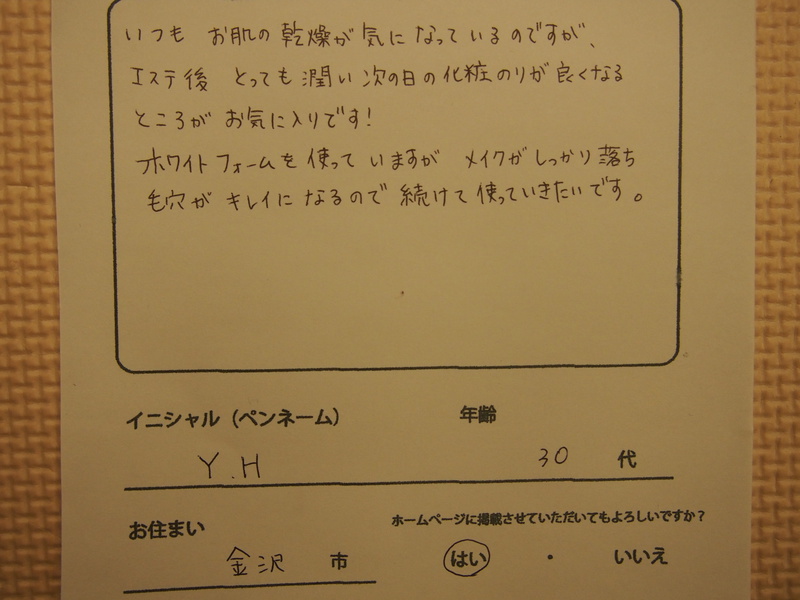 いつも お肌の乾燥が気になっているのですが、
エステ後 とっても潤い次の日の化粧のりが良くなる
ところが お気に入りです!
ホワイトフォームを使って いますが メイクがしっかり落ち
毛穴が キレイに なるので 続けて使っていきたいです。
イニシャル（ペンネーム） 年齢
Y.H 30 代
お住まい ホームページに掲載させていただいてもよろしいですか？
金沢 市 はい ・ いいえ